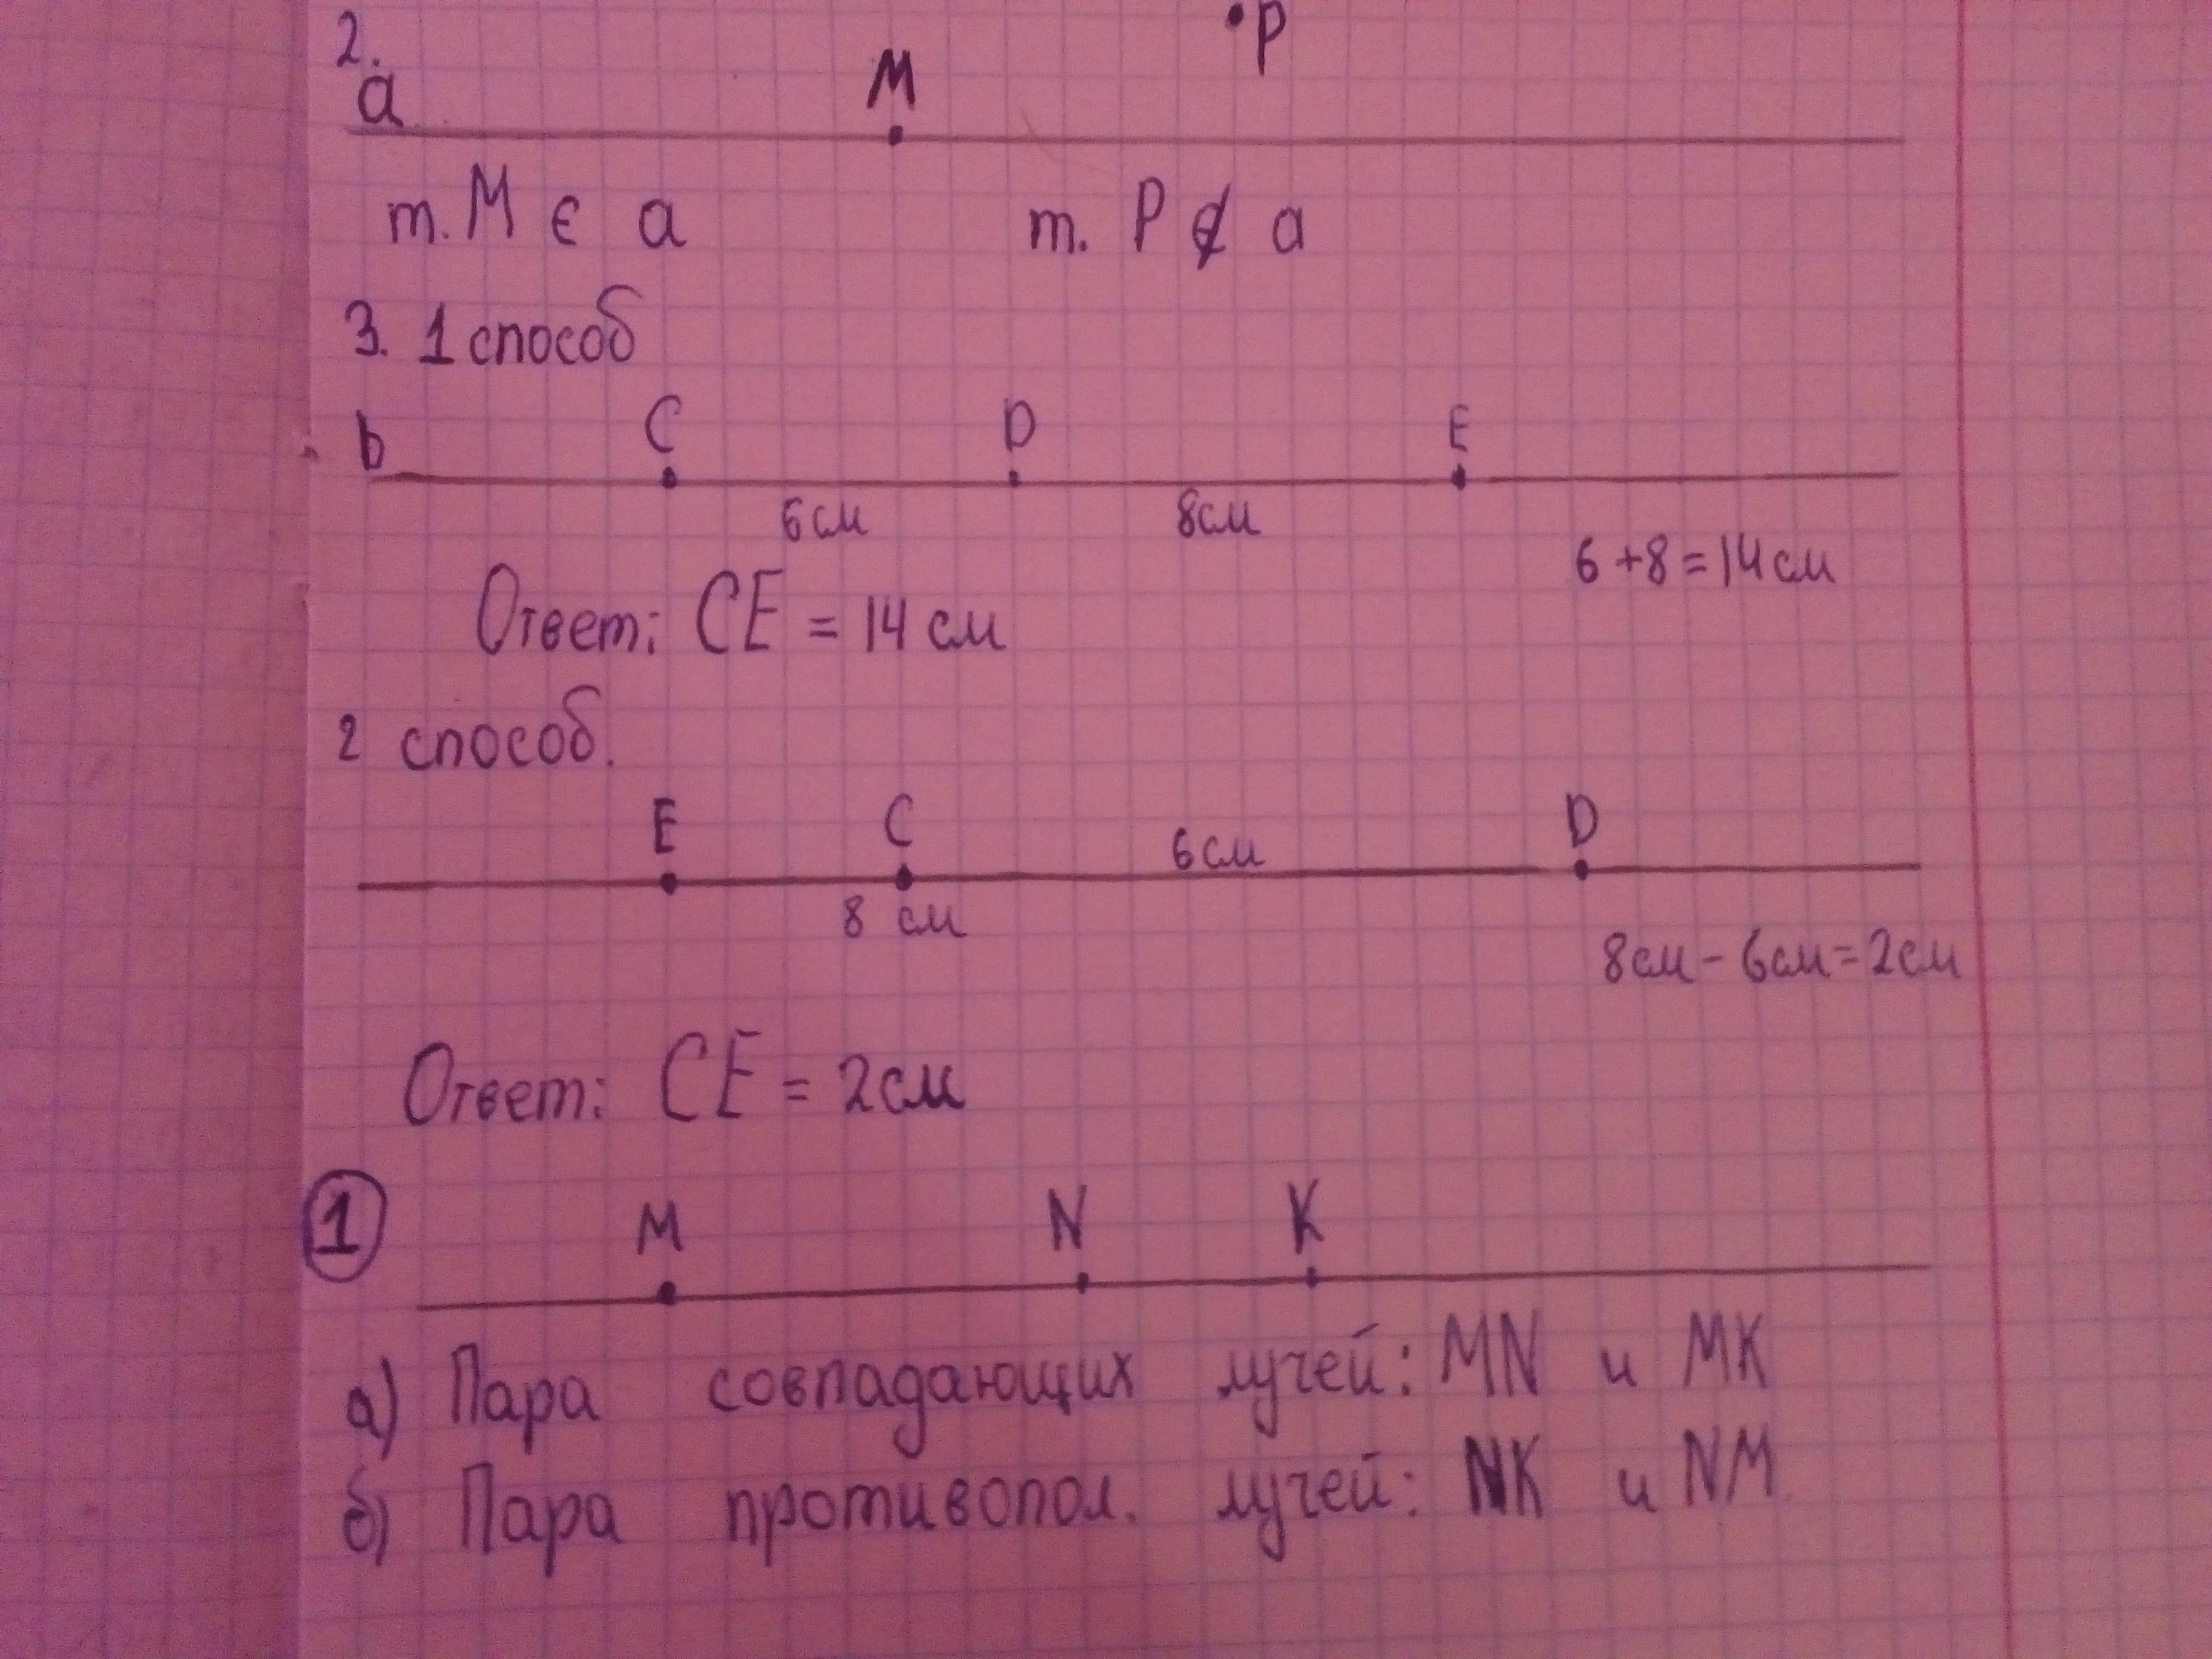 2.
P
a
M
т. M ∈ a
т. P ∉ a
3. 1 способ
b C D E
6 см 8 см
6 + 8 = 14 см
Ответ: CE = 14 см
2 способ.
E C 6 см D
8 см
8 см - 6 см = 2 см
Ответ: CE = 2 см
1 M N K
а) Пара совпадающих лучей: MN и MK
б) Пара противопол. лучей: NK и NM